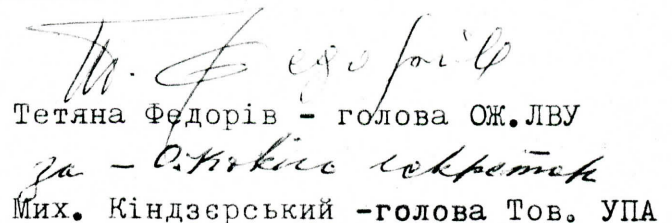 Т. Федорів
Тетяна Федорів - голова ОЖ.ЛВУ
за - секретар
Мих. Кіндзєрський -голова Тов. УПА